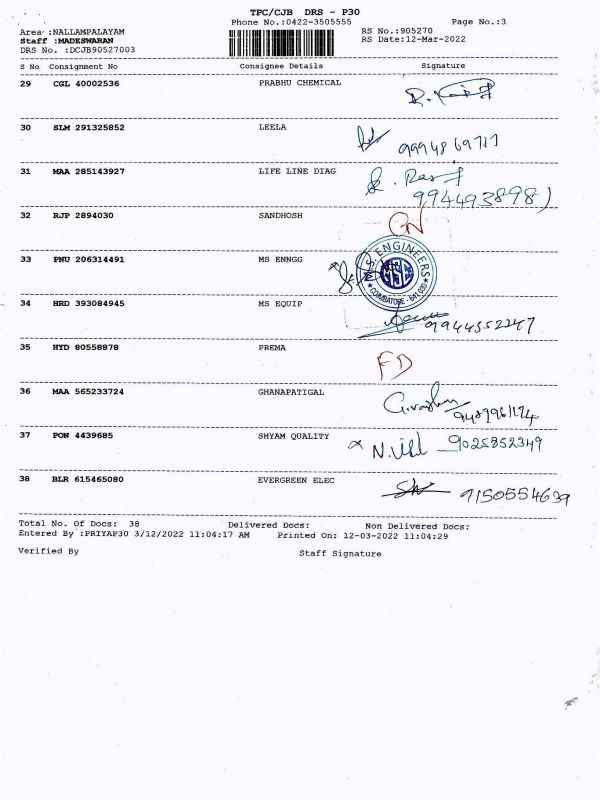 TPC/CJB DRS - P30
Phone No.:0422-3505555
Page No.:3
Area :NALLAMPALAYAM
RS No.:905270
Staff :MADESWARAN
RS Date:12-Mar-2022
DRS No. :DCJB90527003
S No Consignment No Consignee Details Signature
29 CGL 40002536 PRABHU CHEMICAL
30 SLM 291325852 LEELA
31 MAA 285143927 LIFE LINE DIAG
32 RJP 2894030 SANDHOSH
33 PNU 206314491 MS ENNGG
M.S. ENGINEERS
COIMBATORE - 641 035
34 HRD 393084945 MS EQUIP
9944552247
35 HYD 80558878 PREMA
FD
36 MAA 565233724 GHANAPATIGAL
37 PON 4439685 SHYAM QUALITY
9025852349
38 BLR 615465080 EVERGREEN ELEC
9150554639
Total No. Of Docs: 38 Delivered Docs: Non Delivered Docs:
Entered By :PRIYAP30 3/12/2022 11:04:17 AM Printed On: 12-03-2022 11:04:29
Verified By Staff Signature